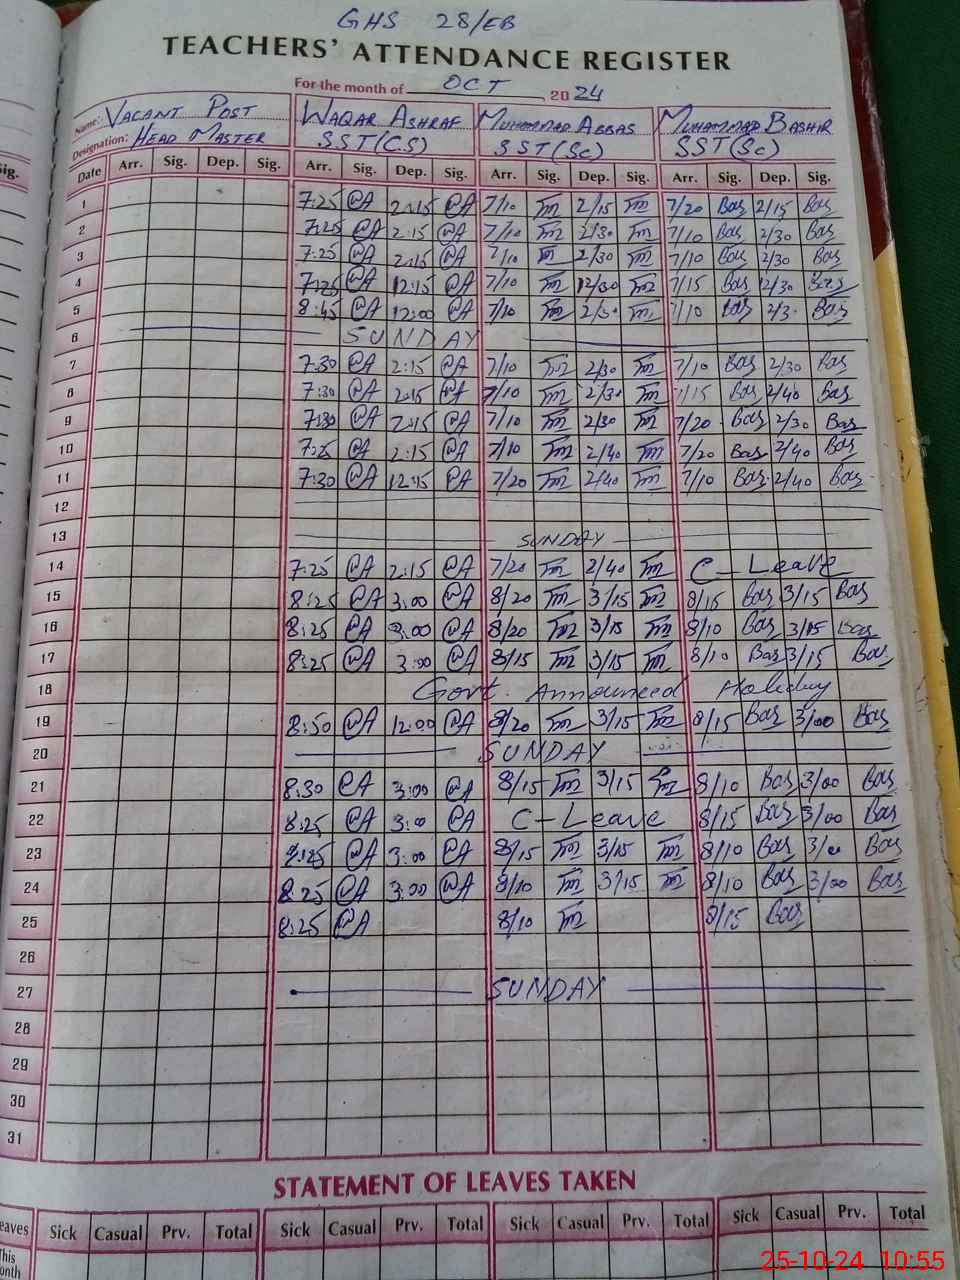 GHS 28/EB
TEACHERS' ATTENDANCE REGISTER
For the month of OCT 2024
Name: VACANT POST WAQAR ASHRAF MUHAMMAD ABBAS MUHAMMAD BASHIR
Designation: HEAD MASTER SST(CS) SST(Sc) SST(Sc)
Sig. Date Arr. Sig. Dep. Sig. Arr. Sig. Dep. Sig. Arr. Sig. Dep. Sig. Arr. Sig. Dep. Sig.
1 7:25 2:15 7/10 2/15 7/20 Bas 2/15 Bas
2 7:25 2:15 7/10 2/30 7/10 Bas 2/30 Bas
3 7:25 2:15 7/10 2/30 7/10 Bas 2/30 Bas
4 7:25 12:15 7/10 12/30 7/15 Bas 12/30 Bas
5 8:45 12:00 7/10 7/10 Bas Bas
6 SUNDAY
7 7:30 2:15 7/10 2/30 7/10 Bas 2/30 Bas
8 7:30 2:15 7/10 2/30 7/15 Bas 2/40 Bas
9 7:30 2:15 7/10 2/30 7/20 Bas 2/30 Bas
10 7:25 2:15 7/10 2/40 7/20 Bas 2/40 Bas
11 7:30 12:15 7/20 2/40 7/10 Bas 2/40 Bas
12
13 SUNDAY
14 7:25 2:15 7/20 2/40 C-Leave
15 8:25 3:00 8/20 3/15 8/15 Bas 3/15 Bas
16 8:25 3:00 8/20 3/15 8/10 Bas 3/15 Bas
17 8:25 3:00 8/15 3/15 8/10 Bas 3/15 Bas
18 Govt. Announced Holiday
19 8:50 12:00 8/20 3/15 8/15 Bas 3/00 Bas
20 SUNDAY
21 8:30 3:00 8/15 3/15 8/10 Bas 3/00 Bas
22 8:25 3:00 C-Leave 8/15 Bas 3/00 Bas
23 8:25 3:00 8/15 3/15 8/10 Bas 3/00 Bas
24 8:25 3:00 8/10 3/15 8/10 Bas 3/00 Bas
25 8:25 8/10 8/15 Bas
26
27 SUNDAY
28
29
30
31
STATEMENT OF LEAVES TAKEN
Sick Casual Prv. Total Sick Casual Prv. Total Sick Casual Prv. Total Sick Casual Prv. Total
25-10-24 10:55